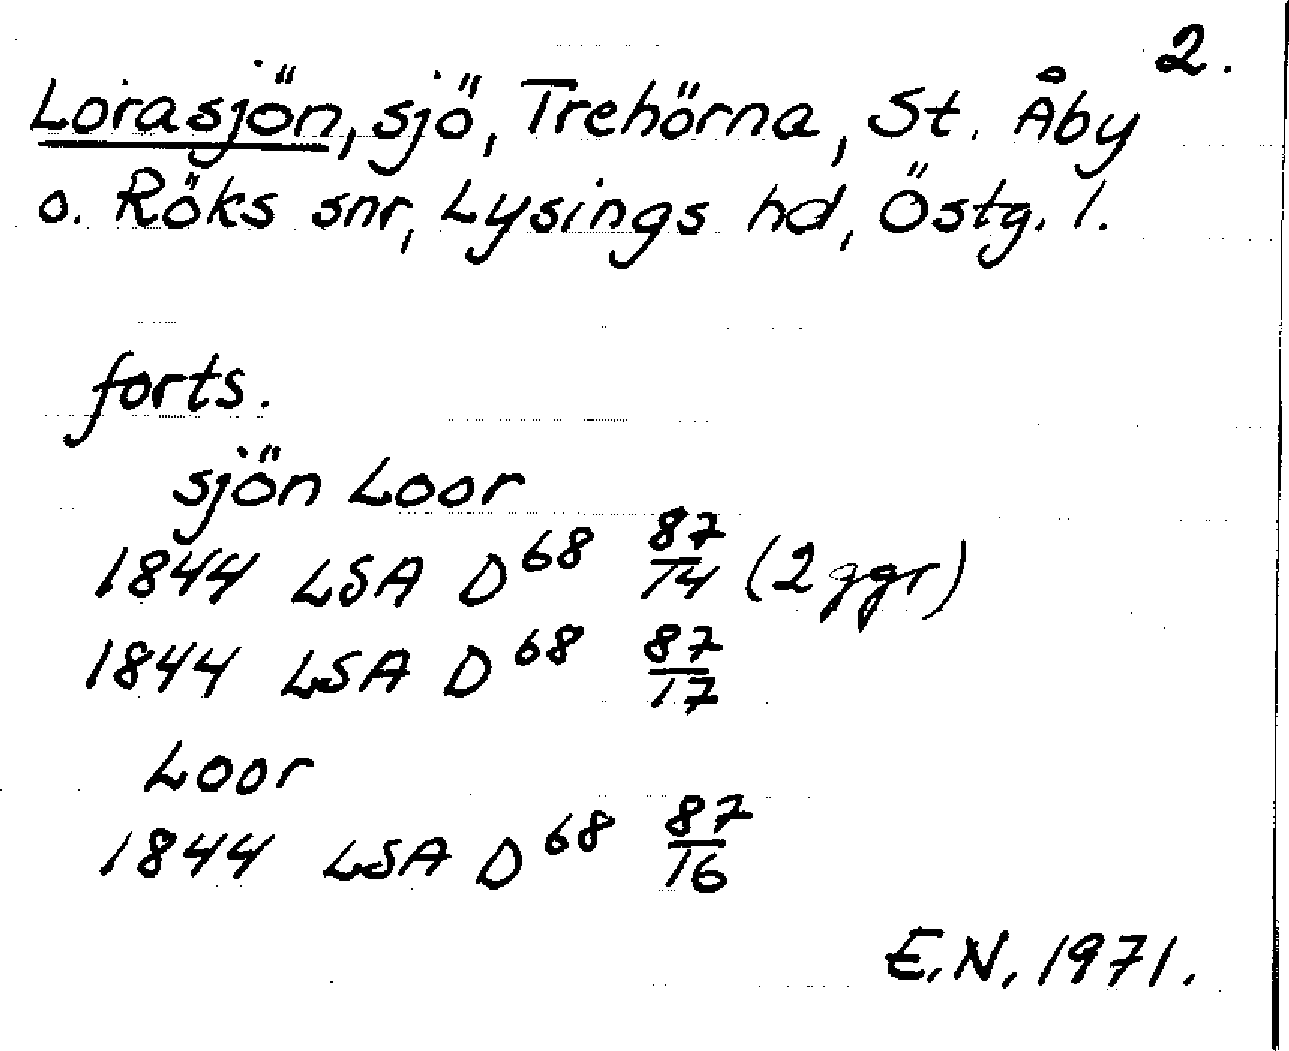 2.
Lorasjön, sjö, Trehörna, St. Åby
o. Röks snr, Lysings hd, Östg. l.
forts.
sjön Loor
1844 LSA D⁶⁸ 87/14 (2 ggr)
1844 LSA D⁶⁸ 87/17
Loor
1844 LSA D⁶⁸ 87/16
E.N. 1971.